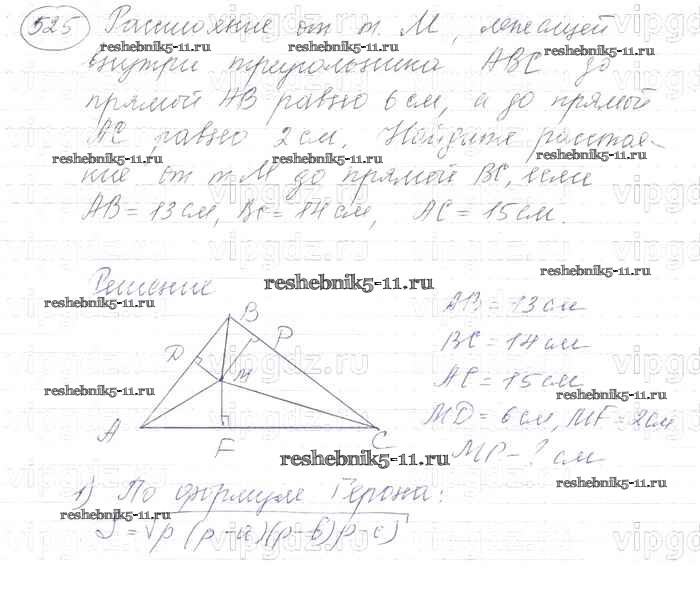 525 Расстояние от т. М, лежащей
внутри треугольника ABC до
прямой AB равно 6 см, а до прямой
AC равно 2 см. Найдите расстоя-
ние от т. М до прямой BC, если
AB = 13 см, BC = 14 см, AC = 15 см.
Решение
AB = 13 см
BC = 14 см
AC = 15 см
MD = 6 см, MF = 2 см
MP - ? см
B
D
P
M
A
F
C
1) По формуле Герона:
S = √p (p-a)(p-b)p-c)
reshebnik5-11.ru
vipgdz.ru